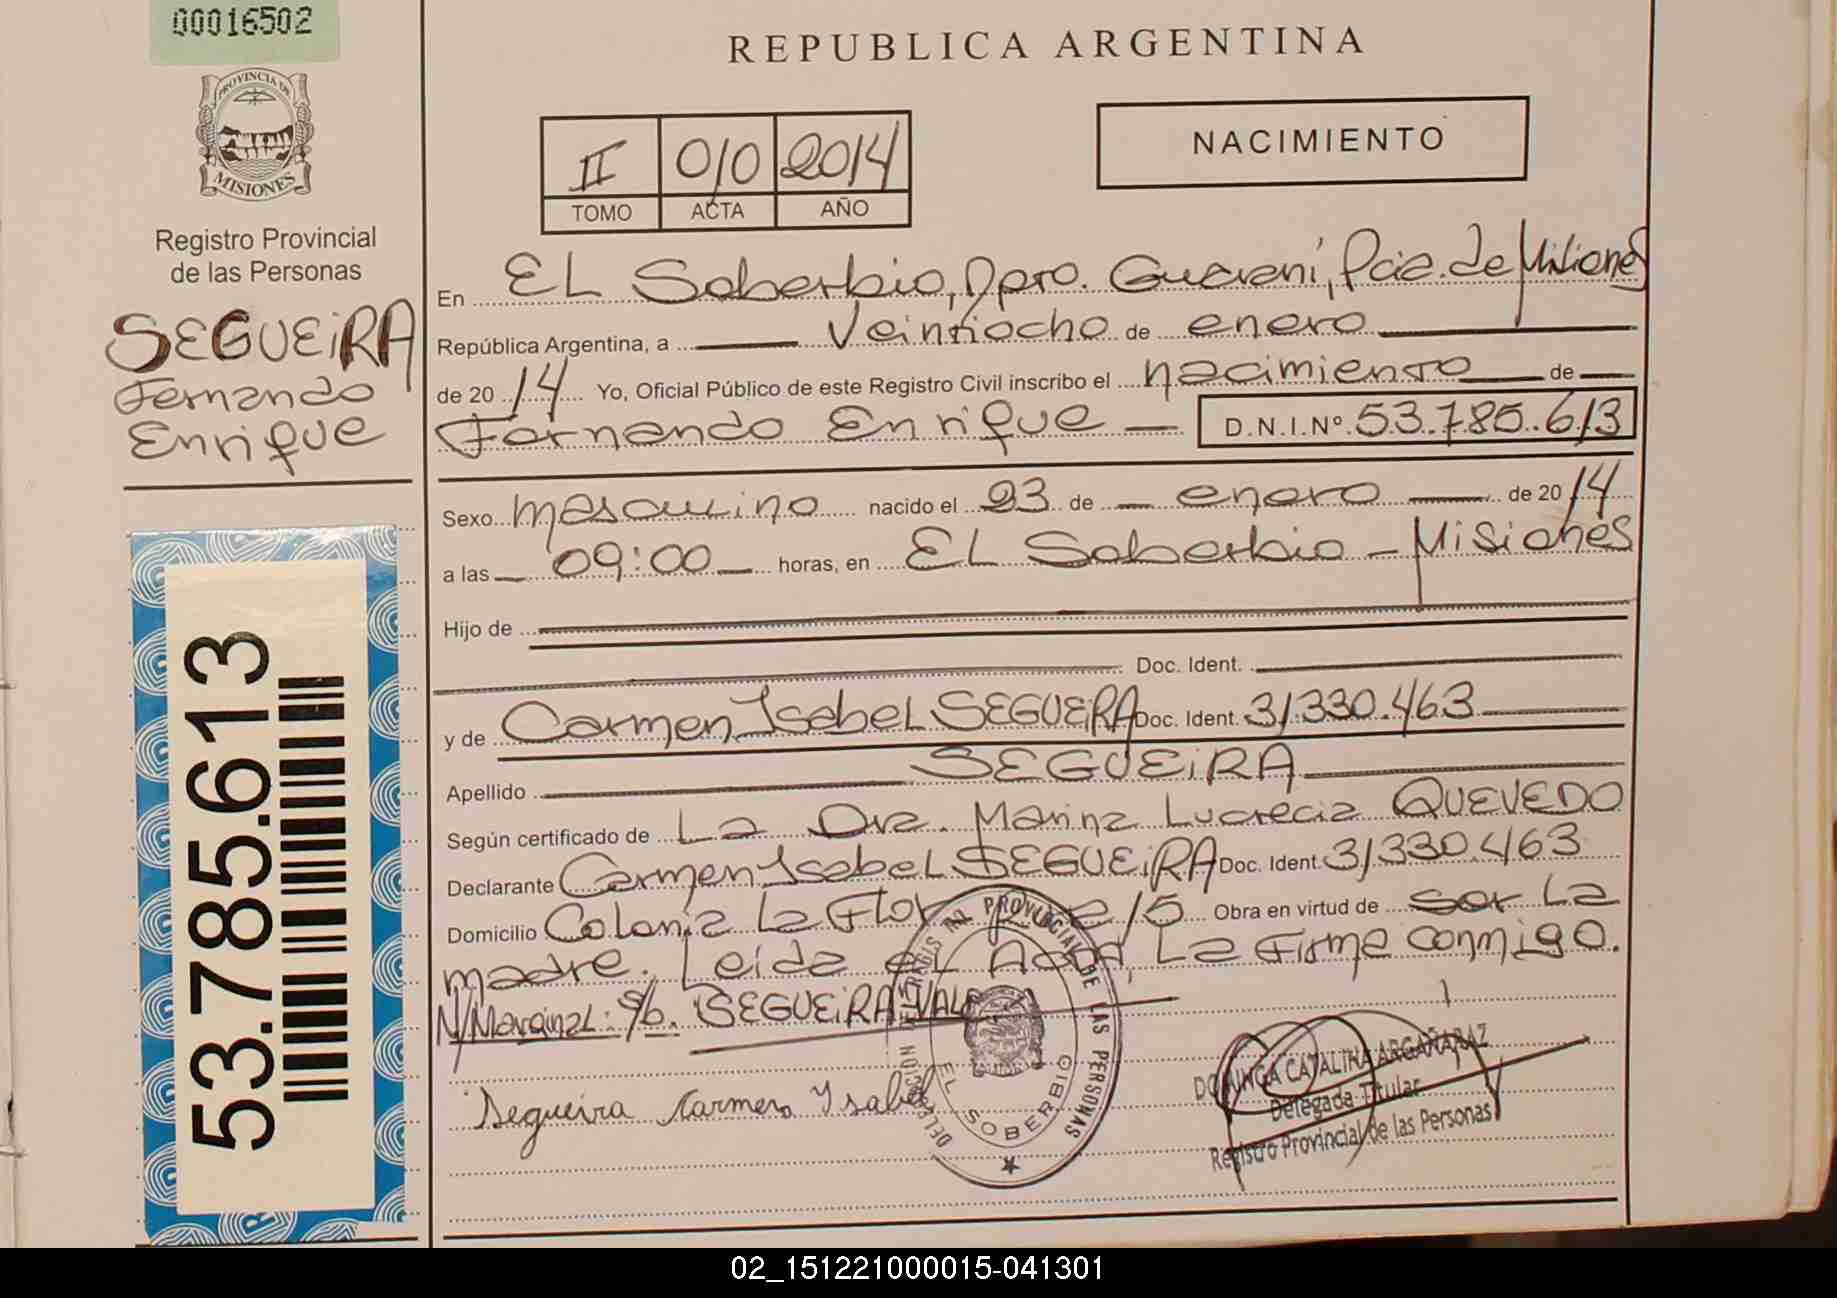 00016502
PROVINCIA DE
MISIONES
Registro Provincial
de las Personas
SEGUEiRA
Fernando
Enrique
53.785.613
REPUBLICA ARGENTINA
II 010 2014
TOMO ACTA AÑO
NACIMIENTO
En EL Soberbio, Dpto. Guaraní, Pcia. de Misiones
República Argentina, a Veintiocho de enero
de 20 14 Yo, Oficial Público de este Registro Civil inscribo el nacimiento de
Fernando Enrique D.N.I.Nº 53.785.613
Sexo masculino nacido el 23 de enero de 2014
a las 09:00 horas, en EL Soberbio - Misiones
Hijo de
Doc. Ident.
y de Carmen Isabel SEGUEiRA Doc. Ident. 31.330.463
Apellido SEGUEiRA
Según certificado de La Dra. Marina Lucrecia QUEVEDO
Declarante Carmen Isabel SEGUEiRA Doc. Ident. 31.330.463
Domicilio Colonia La Flor 15 Obra en virtud de ser La
madre. Leida el Acta, La firma conmigo.
N/Marginal: S/b. SEGUEiRA VALE
Segueira Carmen Ysabel
PROVINCIAL DE LAS PERSONAS
EL SOBERBIO
DOMINGA CATALINA ARGAÑARAZ
Delegada Titular
Registro Provincial de las Personas
02_151221000015-041301